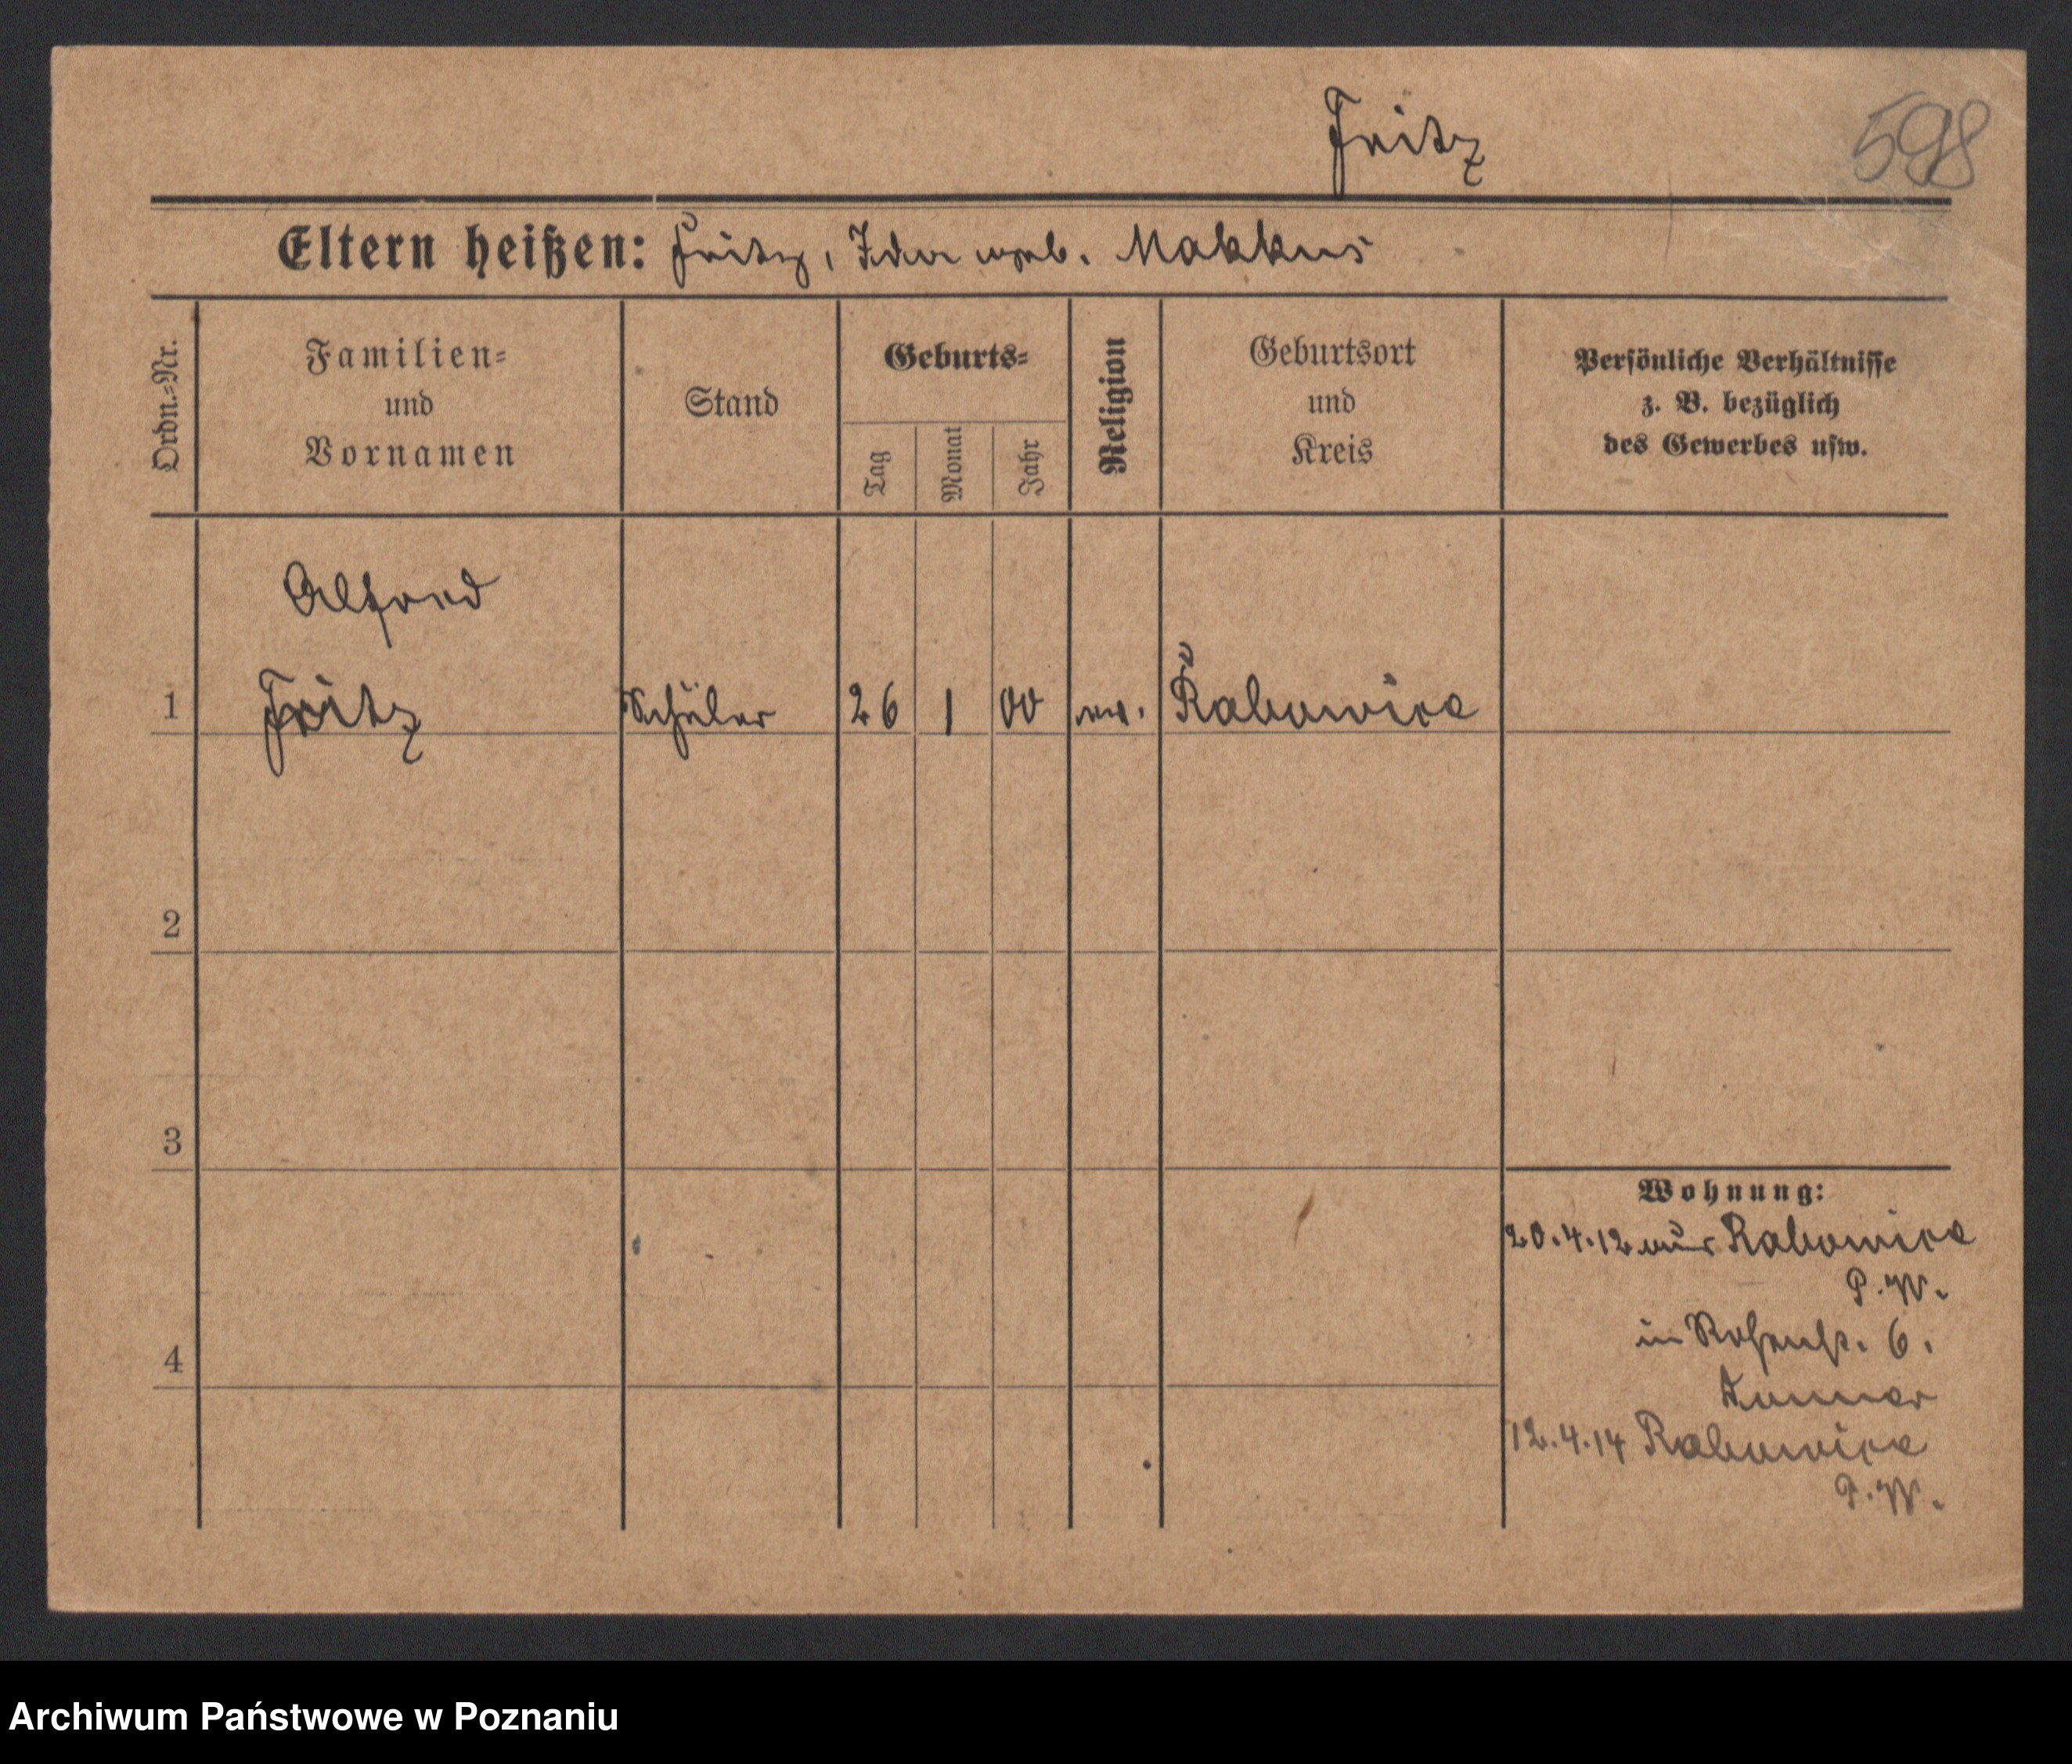 Fritz
598
Eltern heißen: Fritz, Ida geb. Makkus
Ordn.=Nr.
Familien=
und
Vornamen
Stand
Geburts=
Tag
Monat
Jahr
Religion
Geburtsort
und
Kreis
Persönliche Verhältnisse
z. B. bezüglich
des Gewerbes usw.
Alfred
1 Fritz Schüler 26 1 00 ev. Rabowice
2
3
4
Wohnung:
20.4.12 aus Rabowice
P.W.
in Rosenstr. 6.
12.4.14 Rabowice
P.W.
Archiwum Państwowe w Poznaniu